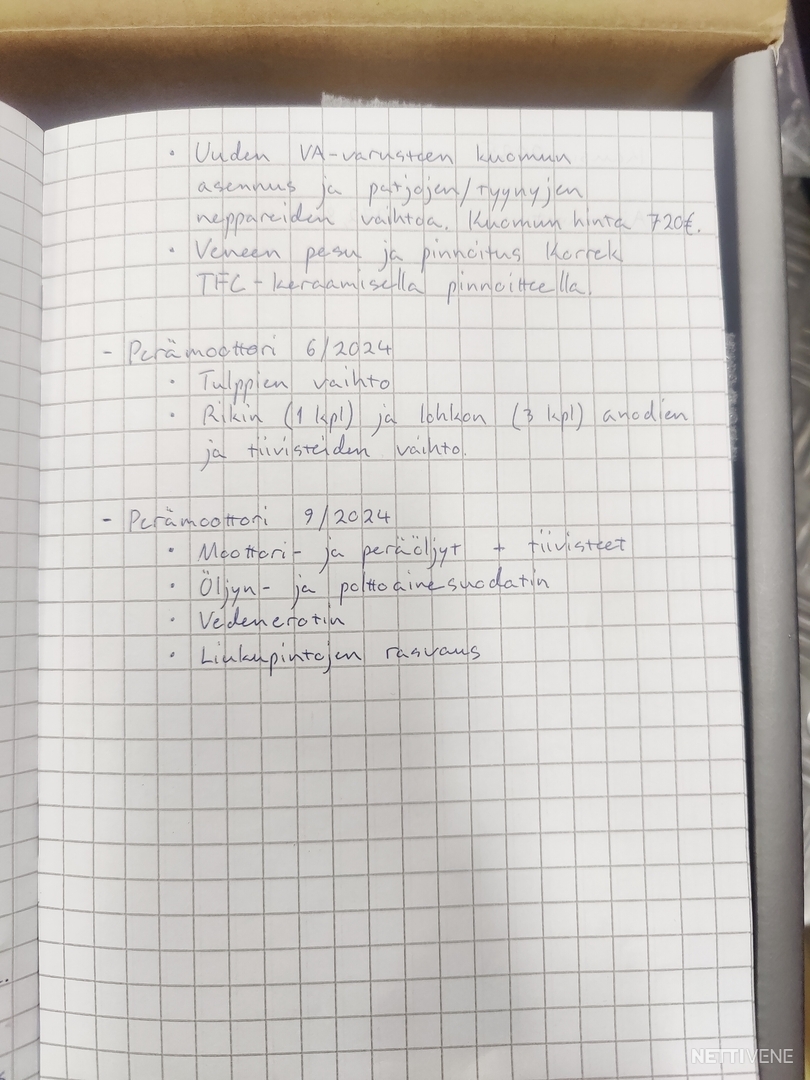 • Uuden VA-varusteen kuomun
asennus ja patjojen/tyynyjen
neppareiden vaihtoa. Kuomun hinta 720€.
• Veneen pesu ja pinnoitus Korrek
TFC-keraamisella pinnoitteella.
- Perämoottori 6/2024
• Tulppien vaihto
• Rikin (1 kpl) ja lohkon (3 kpl) anodien
ja tiivisteiden vaihto.
- Perämoottori 9/2024
• Moottori- ja peräöljyt + tiivisteet
• Öljyn- ja polttoainesuodatin
• Vedenerotin
• Liukupintojen rasvaus
NETTIVENE